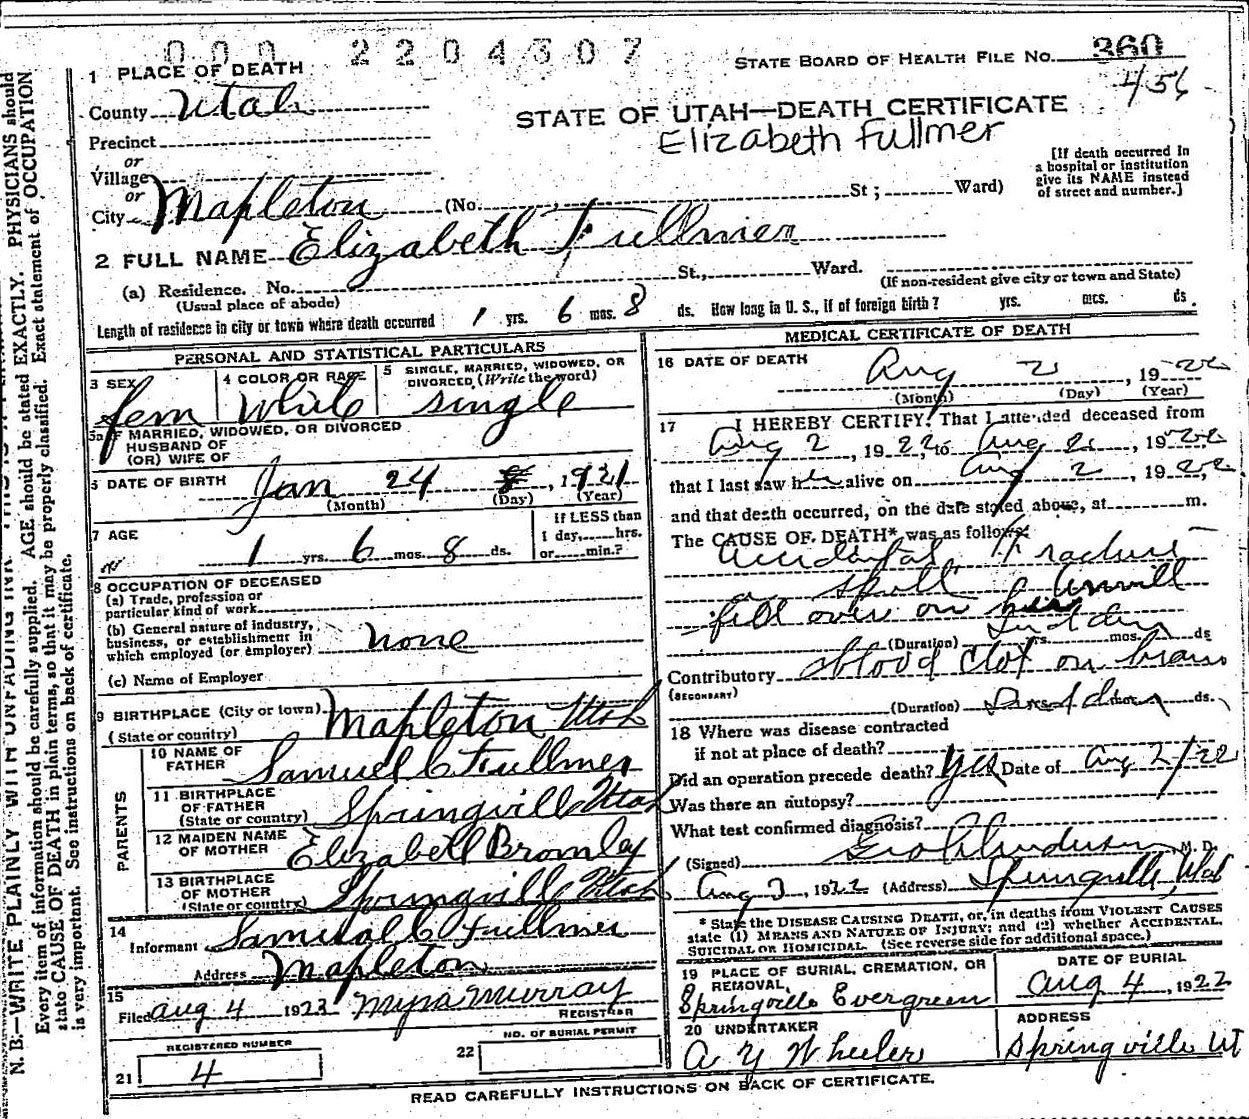 000 2204307
STATE BOARD OF HEALTH FILE No. 360
456
1 PLACE OF DEATH
County Utah
STATE OF UTAH—DEATH CERTIFICATE
Elizabeth Fullmer
Precinct
or
Village
or
City Mapleton (No. St; Ward)
[If death occurred in a hospital or institution give its NAME instead of street and number.]
2 FULL NAME Elizabeth Fullmer
(a) Residence. No. St., Ward.
(Usual place of abode) (If non-resident give city or town and State)
Length of residence in city or town where death occurred 1 yrs. 6 mos. 8 ds. How long in U. S., if of foreign birth? yrs. mcs. ds.
PERSONAL AND STATISTICAL PARTICULARS
3 SEX 4 COLOR OR RACE 5 SINGLE, MARRIED, WIDOWED, OR DIVORCED, (Write the word)
fem White single
5a IF MARRIED, WIDOWED, OR DIVORCED
HUSBAND OF
(OR) WIFE OF
6 DATE OF BIRTH Jan 24, 1921
(Month) (Day) (Year)
7 AGE
1 yrs. 6 mos. 8 ds.
If LESS than
1 day, hrs.
or min.?
8 OCCUPATION OF DECEASED
(a) Trade, profession or
particular kind of work
(b) General nature of industry,
business, or establishment in
which employed (or employer) none
(c) Name of Employer
9 BIRTHPLACE (City or town) Mapleton Utah
(State or country)
PARENTS
10 NAME OF
FATHER Samuel C Fullmer
11 BIRTHPLACE
OF FATHER
(State or country) Springville Utah
12 MAIDEN NAME
OF MOTHER Elizabell Bromley
13 BIRTHPLACE
OF MOTHER
(State or country) Springville Utah
14
Informant Samuel C Fullmer
Address Mapleton
15
Filed Aug 4 1923 Myra Murray
REGISTRAR
REGISTERED NUMBER
21 4
NO. OF BURIAL PERMIT
22
MEDICAL CERTIFICATE OF DEATH
16 DATE OF DEATH
Aug 2, 1922
(Month) (Day) (Year)
17 I HEREBY CERTIFY, That I attended deceased from
Aug 2, 1922, to Aug 2, 1922
that I last saw her alive on Aug 2, 1922
and that death occurred, on the date stated above, at m.
The CAUSE OF DEATH* was as follows:
Accidental Fracture
skull Anvill
fell over on her
Sudden
(Duration) yrs. mos. ds
Contributory blood clot on brain
(SECONDARY)
(Duration) Sudden ds.
18 Where was disease contracted
if not at place of death?
Did an operation precede death? yes Date of Aug 2/22
Was there an autopsy?
What test confirmed diagnosis?
(Signed) Anderson M. D.
Aug 3, 1922 (Address) Springville, Utah
* State the DISEASE CAUSING DEATH, or, in deaths from VIOLENT CAUSES
state (1) MEANS AND NATURE OF INJURY; and (2) whether ACCIDENTAL,
SUICIDAL OR HOMICIDAL. (See reverse side for additional space.)
19 PLACE OF BURIAL, CREMATION, OR
REMOVAL,
Springville Evergreen
DATE OF BURIAL
Aug 4, 1922
20 UNDERTAKER
A Y Wheeler
ADDRESS
Springville Ut
READ CAREFULLY INSTRUCTIONS ON BACK OF CERTIFICATE.
Every item of information should be carefully supplied. AGE should be stated EXACTLY. PHYSICIANS should
state CAUSE OF DEATH in plain terms, so that it may be properly classified. Exact statement of OCCUPATION
is very important. See instructions on back of certificate.
N. B.—WRITE PLAINLY WITH UNFADING INK